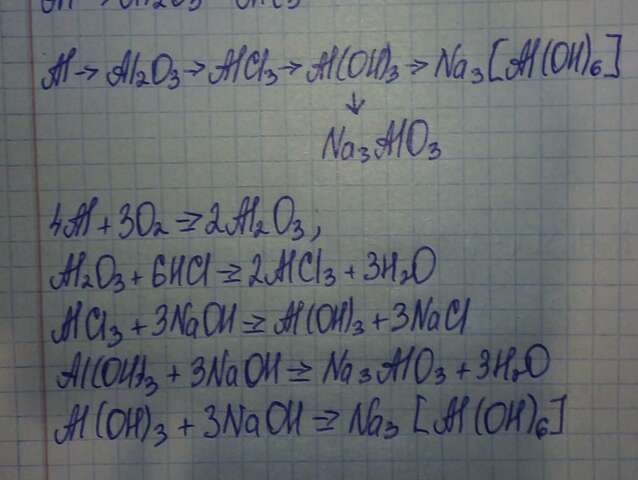 Al → Al₂O₃ → AlCl₃ → Al(OH)₃ → Na₃[Al(OH)₆]
↓
Na₃AlO₃
4Al + 3O₂ = 2Al₂O₃,
Al₂O₃ + 6HCl = 2AlCl₃ + 3H₂O
AlCl₃ + 3NaOH = Al(OH)₃ + 3NaCl
Al(OH)₃ + 3NaOH = Na₃AlO₃ + 3H₂O
Al(OH)₃ + 3NaOH = Na₃[Al(OH)₆]